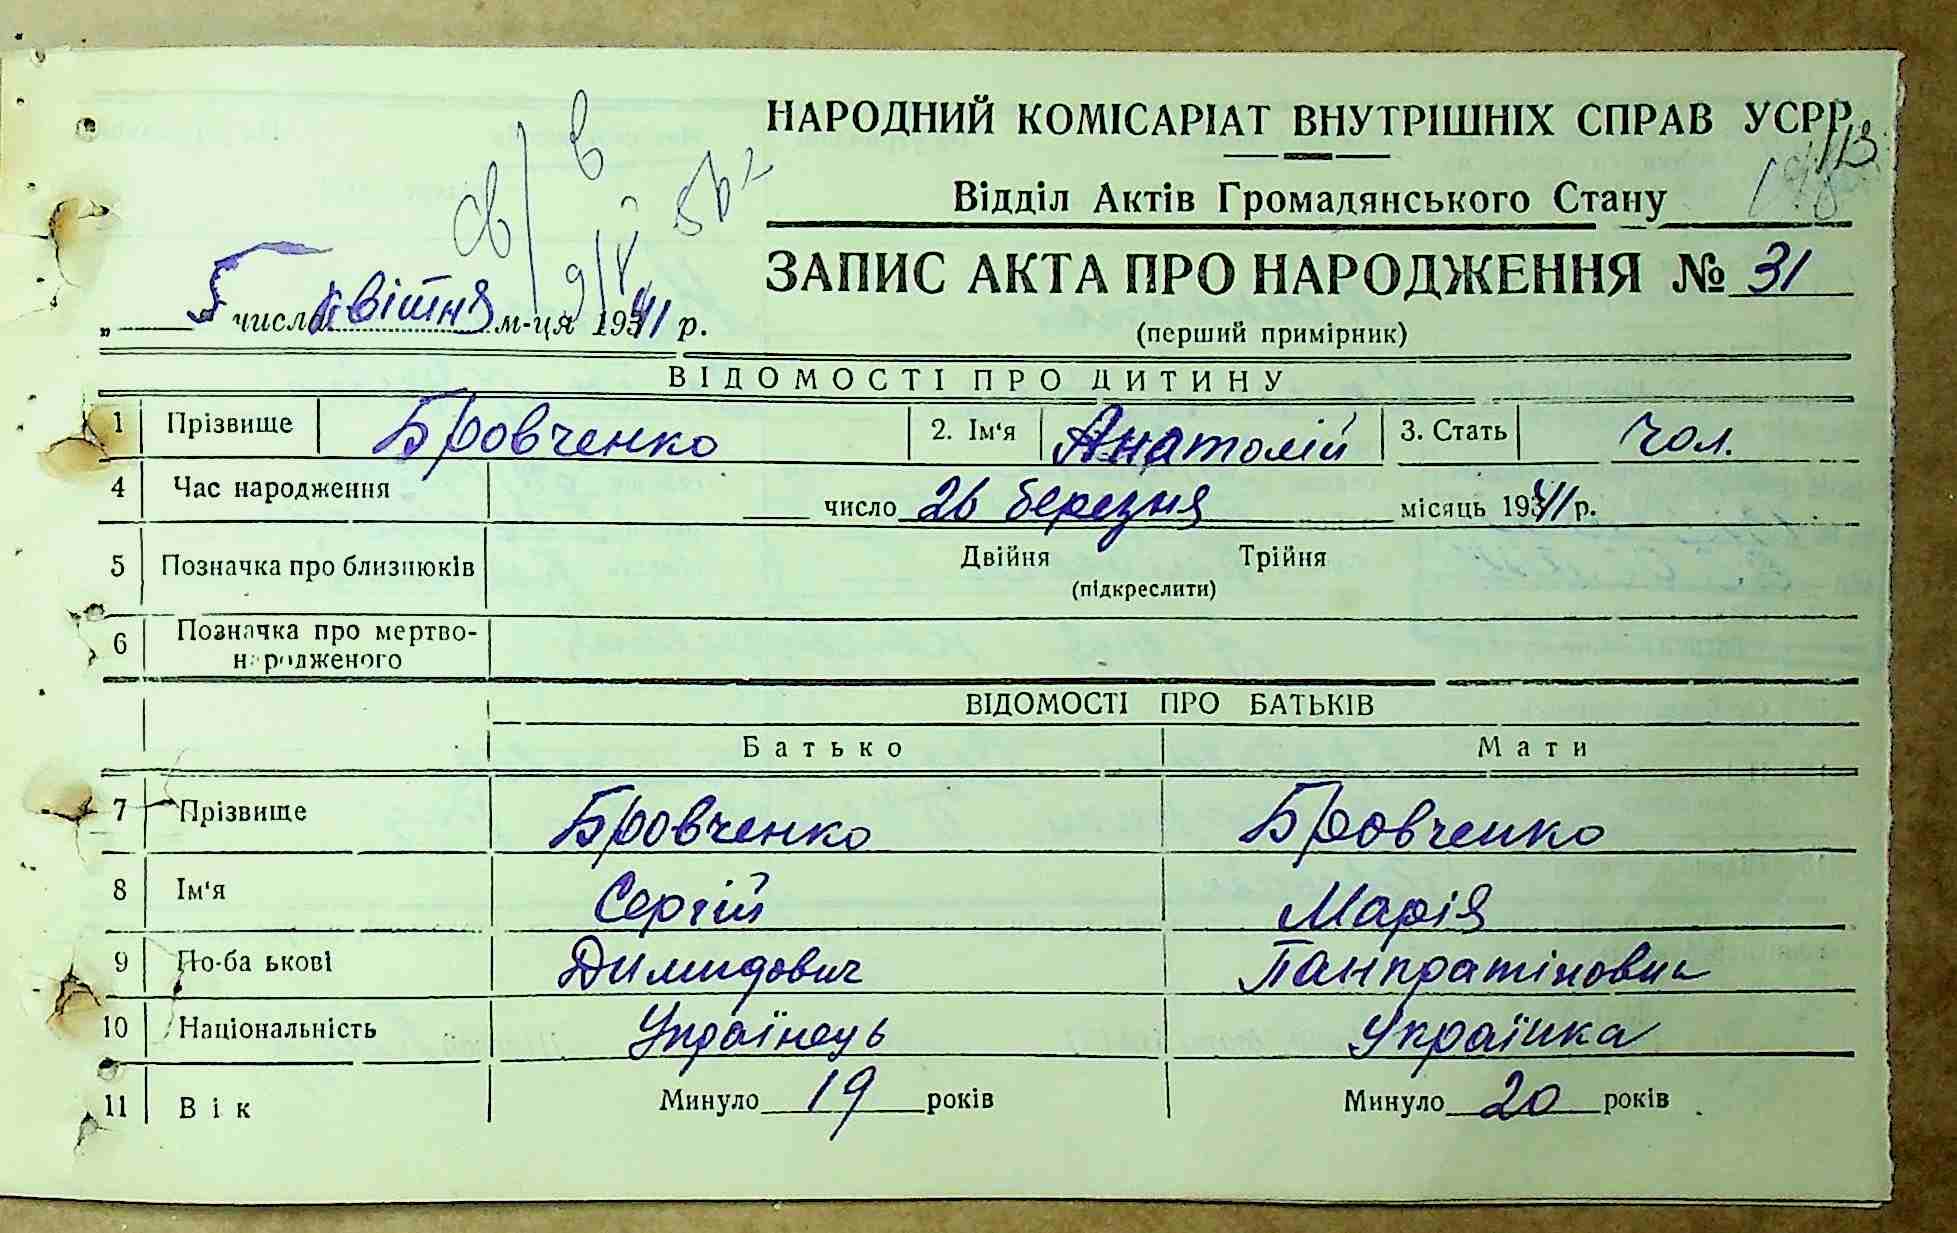 НАРОДНИЙ КОМІСАРІАТ ВНУТРІШНІХ СПРАВ УСРР
Відділ Актів Громадянського Стану
ЗАПИС АКТА ПРО НАРОДЖЕННЯ № 31
„ 5 числа квітня м-ця 1941 р.
(перший примірник)
ВІДОМОСТІ ПРО ДИТИНУ
1 Прізвище Бровченко 2. Ім'я Анатолій 3. Стать чол.
4 Час народження число 26 березня місяць 1941 р.
5 Позначка про близнюків Двійня Трійня
(підкреслити)
6 Позначка про мертво-
народженого
ВІДОМОСТІ ПРО БАТЬКІВ
Батько Мати
7 Прізвище Бровченко Бровченко
8 Ім'я Сергій Марія
9 По-ба ькові Димидович Панкратіновна
10 Національність Українець Українка
11 Вік Минуло 19 років Минуло 20 років